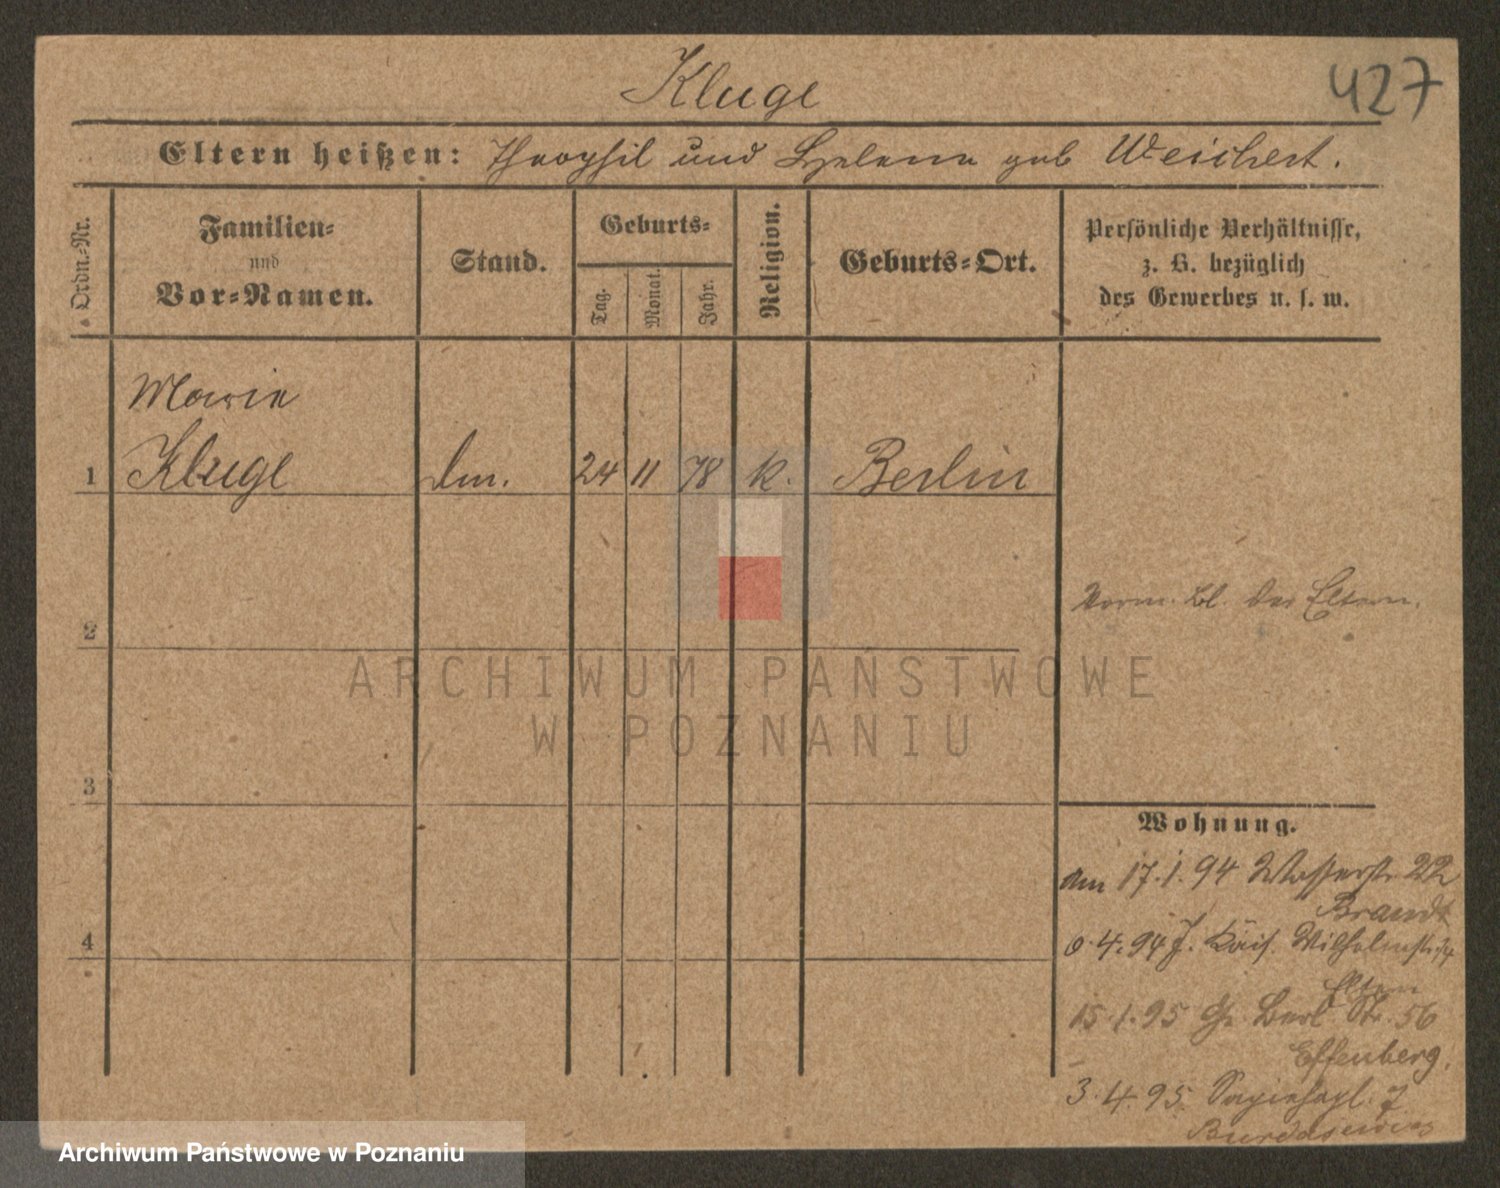 Kluge
427
Eltern heißen: Theophil und Helene geb Weichert.
Ordn.-Nr.
Familien-
und
Vor-Namen.
Stand.
Geburts-
Tag.
Monat.
Jahr.
Religion.
Geburts-Ort.
Persönliche Verhältnisse,
z. B. bezüglich
des Gewerbes u. s. w.
Marie
1 Kluge 24 11 78 k. Berlin
Vorm. Bl. der Eltern.
2
ARCHIWUM PAŃSTWOWE
W POZNANIU
3
Wohnung.
am 17.1.94 Wasserstr. 22
Brandt
4
4.94 Wilhelmstr.
Eltern
15.1.95 Gr. Berl. Str. 56
Effenberg.
3.4.95 Sapiehapl. 7
Archiwum Państwowe w Poznaniu